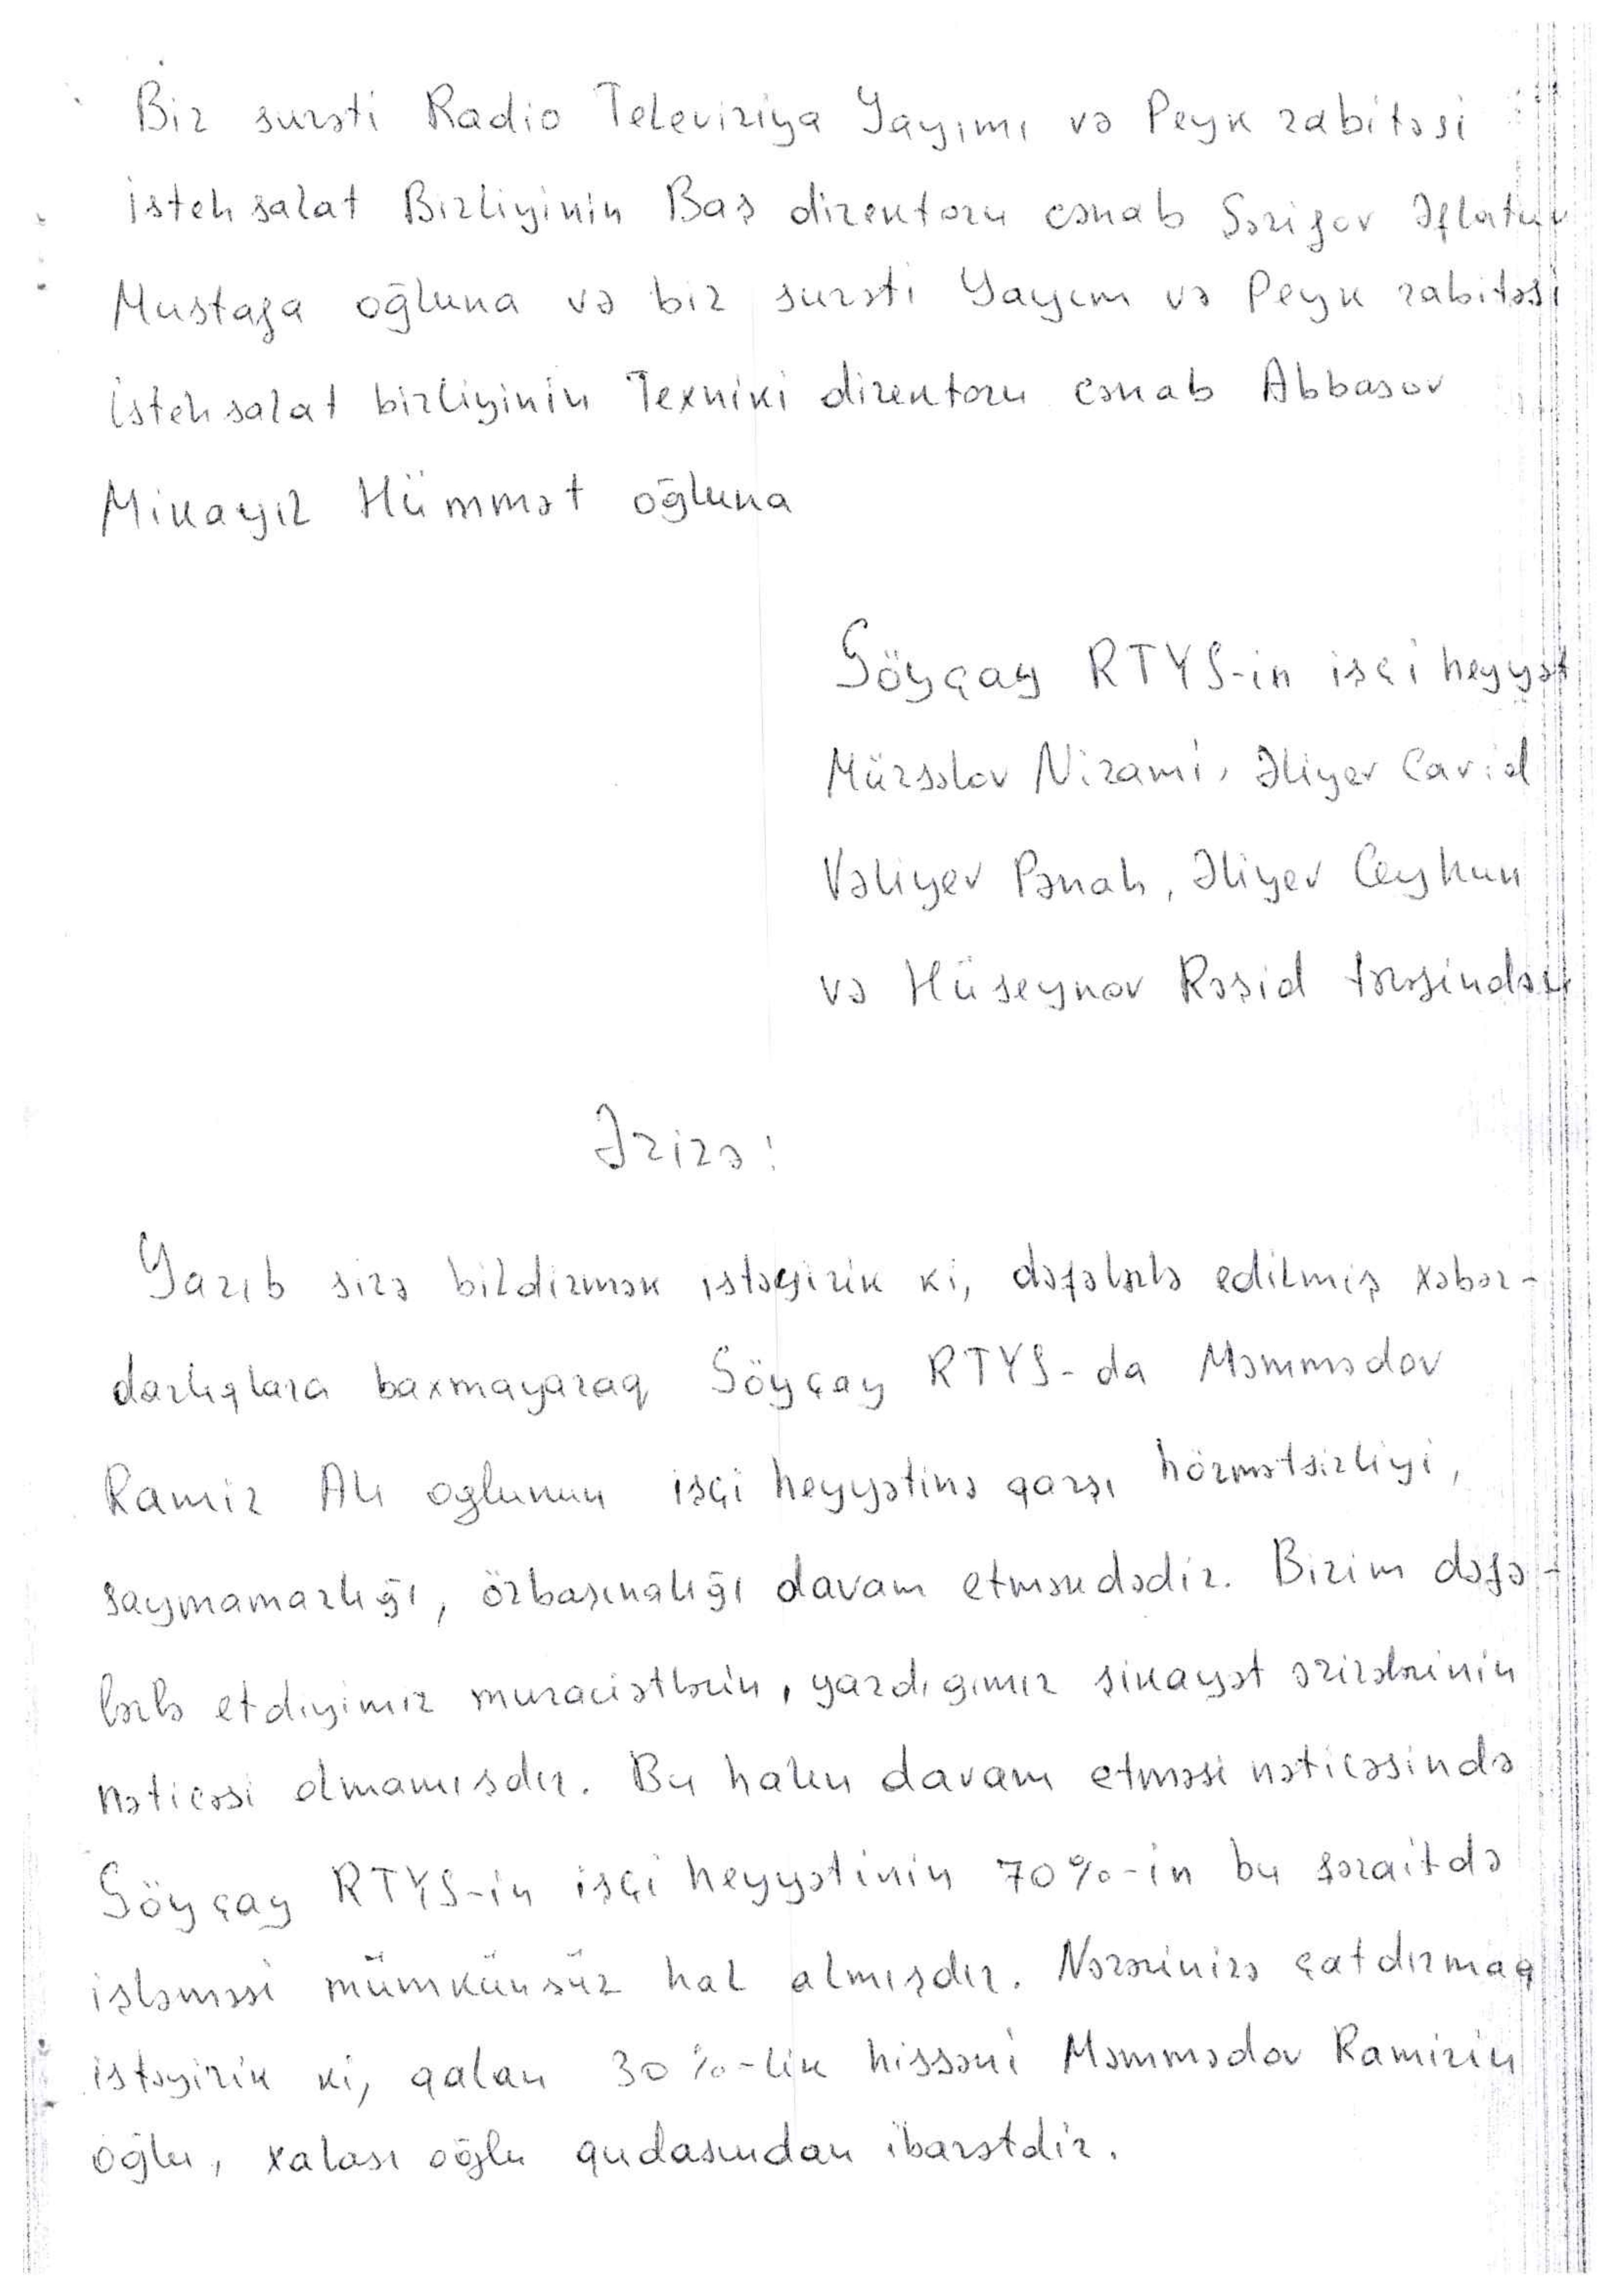 Bir surəti Radio Televiziya Yayımı və Peyk rabitəsi
istehsalat Birliyinin Baş direktoru cənab Şərifov Əflatun
Mustafa oğluna və bir surəti Yayım və Peyk rabitəsi
istehsalat birliyinin Texniki direktoru cənab Abbasov
Mikayıl Hümmət oğluna
Göyçay RTYS-in işçi heyyət
Mürsəlov Nizami, Əliyev Cavid
Vəliyev Pənah, Əliyev Ceyhun
və Hüseynov Rəşid tərəfindən
Ərizə:
Yazıb sizə bildirmək istəyirik ki, dəfələrlə edilmiş xəbər-
darlıqlara baxmayaraq Göyçay RTYS-da Məmmədov
Ramiz Alı oglunun işçi heyyətinə qarşı hörmətsizliyi,
saymamazlığı, özbaşınalığı davam etməkdədir. Bizim dəfə-
lərlə etdiyimiz muraciətlərin, yazdıgımız şikayət ərizələrinin
nəticəsi olmamısdır. Bu halın davam etməsi nəticəsində
Göyçay RTYS-in işçi heyyətinin 70%-in bu şəraitdə
işləməsi mümkünsüz hal almışdır. Nəzərinizə çatdırmaq
istəyirik ki, qalan 30%-lik hissəni Məmmədov Ramizin
oğlu, xalası oğlu qudasından ibarətdir.